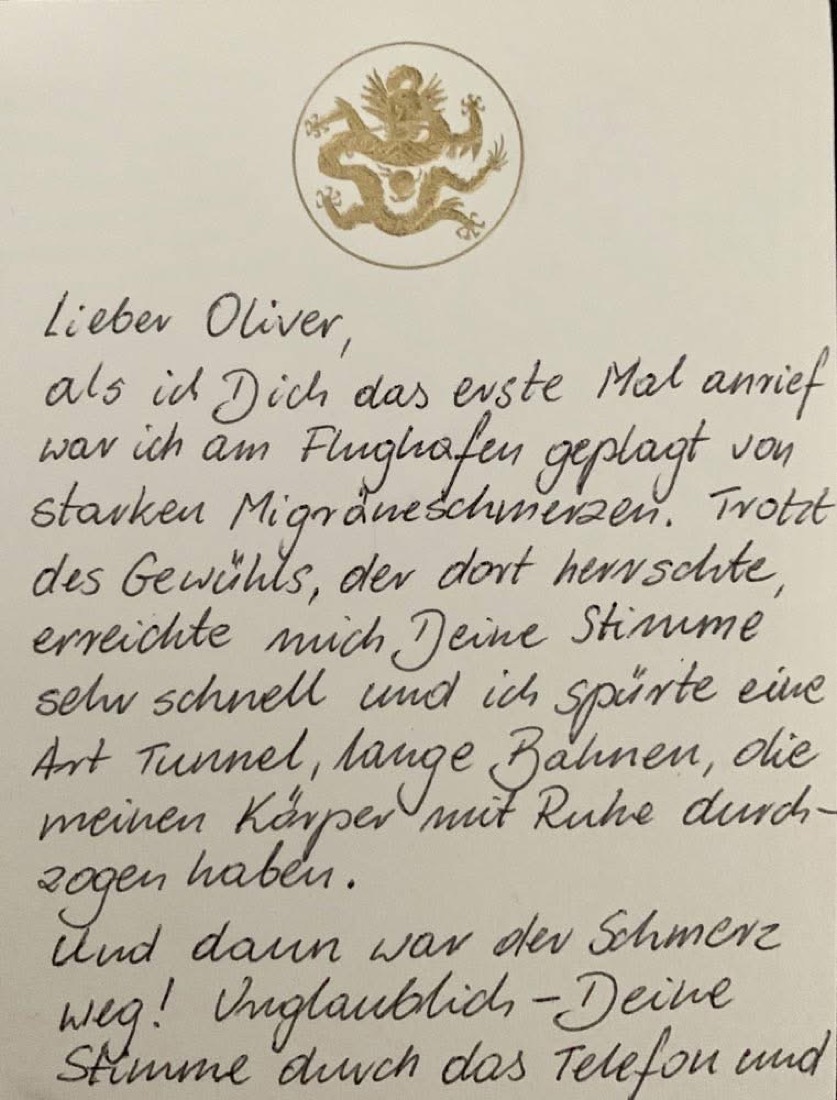 Lieber Oliver,
als ich Dich das erste Mal anrief
war ich am Flughafen geplagt von
starken Migräneschmerzen. Trotzt
des Gewühls, der dort herrschte,
erreichte mich Deine Stimme
sehr schnell und ich spürte eine
Art Tunnel, lange Bahnen, die
meinen Körper mit Ruhe durch-
zogen haben.
Und dann war der Schmerz
weg! Unglaublich – Deine
Stimme durch das Telefon und